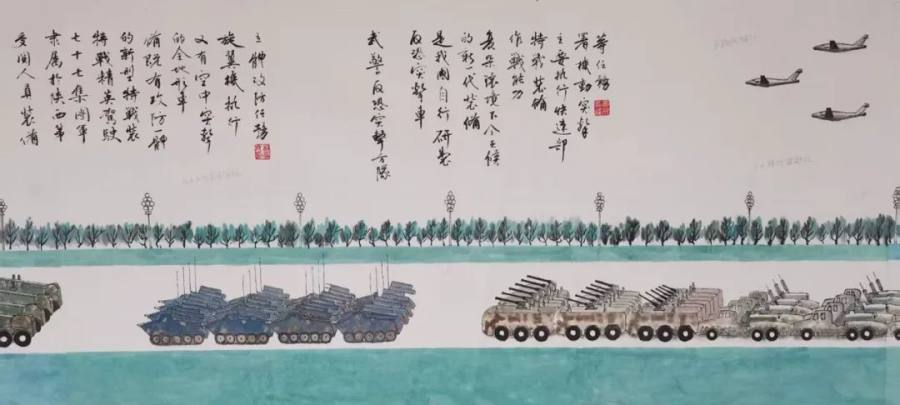 受閲人員装備
隶属於陕西第
七十七集團軍
特戰精英駕駛
的新型特戰装
備既有攻防一體
的全地形車
又有空中突擊
旋翼機执行
主體攻防任務
武警反恐突擊方隊
反恐突擊車
是我國自行研製
的新一代装備
复杂環境下全天候
作戰能力
特戰装備
主要执行快速部
署機動突擊
等任務